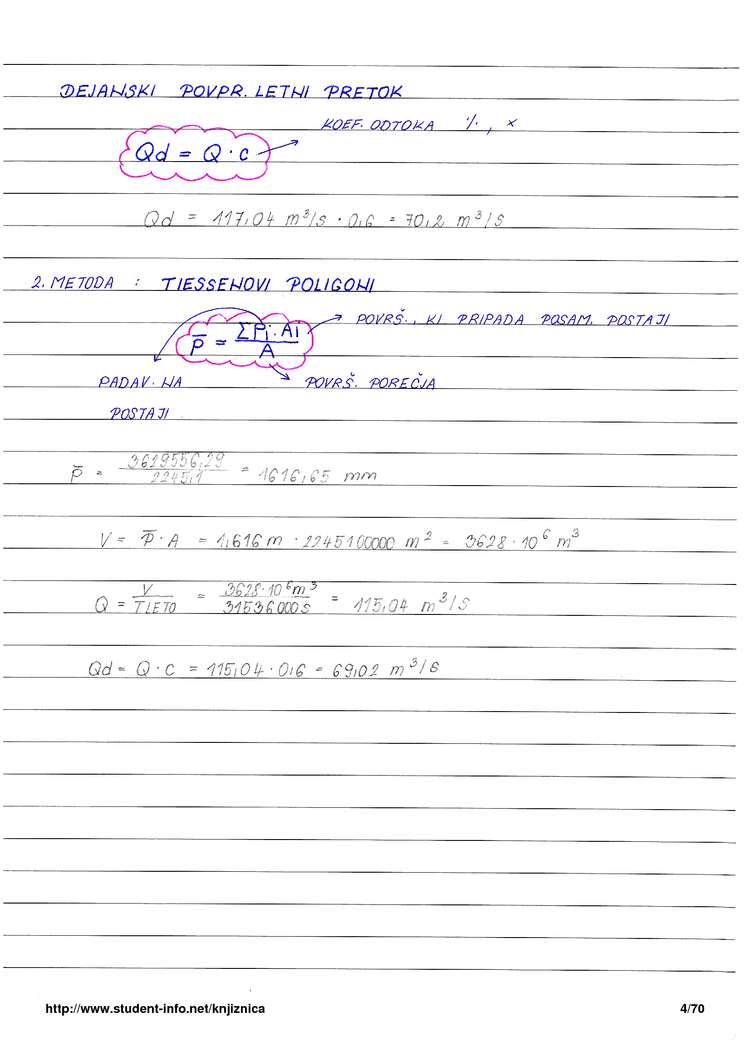 DEJANSKI POVPR. LETNI PRETOK
KOEF. ODTOKA %, x
Qd = Q · c
Qd = 117,04 m³/s · 0,6 = 70,2 m³/s
2. METODA : TIESSENOVI POLIGONI
POVRŠ., KI PRIPADA POSAM. POSTAJI
P̅ = ΣPi · Ai / A
PADAV. NA POSTAJI
POVRŠ. POREČJA
P̅ = 3629556,29 / 2245,1 = 1616,65 mm
V = P̅ · A = 1,616 m · 2245100000 m² = 3628 · 10⁶ m³
Q = V / TLETO = 3628 · 10⁶ m³ / 31536000 s = 115,04 m³/s
Qd = Q · c = 115,04 · 0,6 = 69,02 m³/s
http://www.student-info.net/knjiznica
4/70